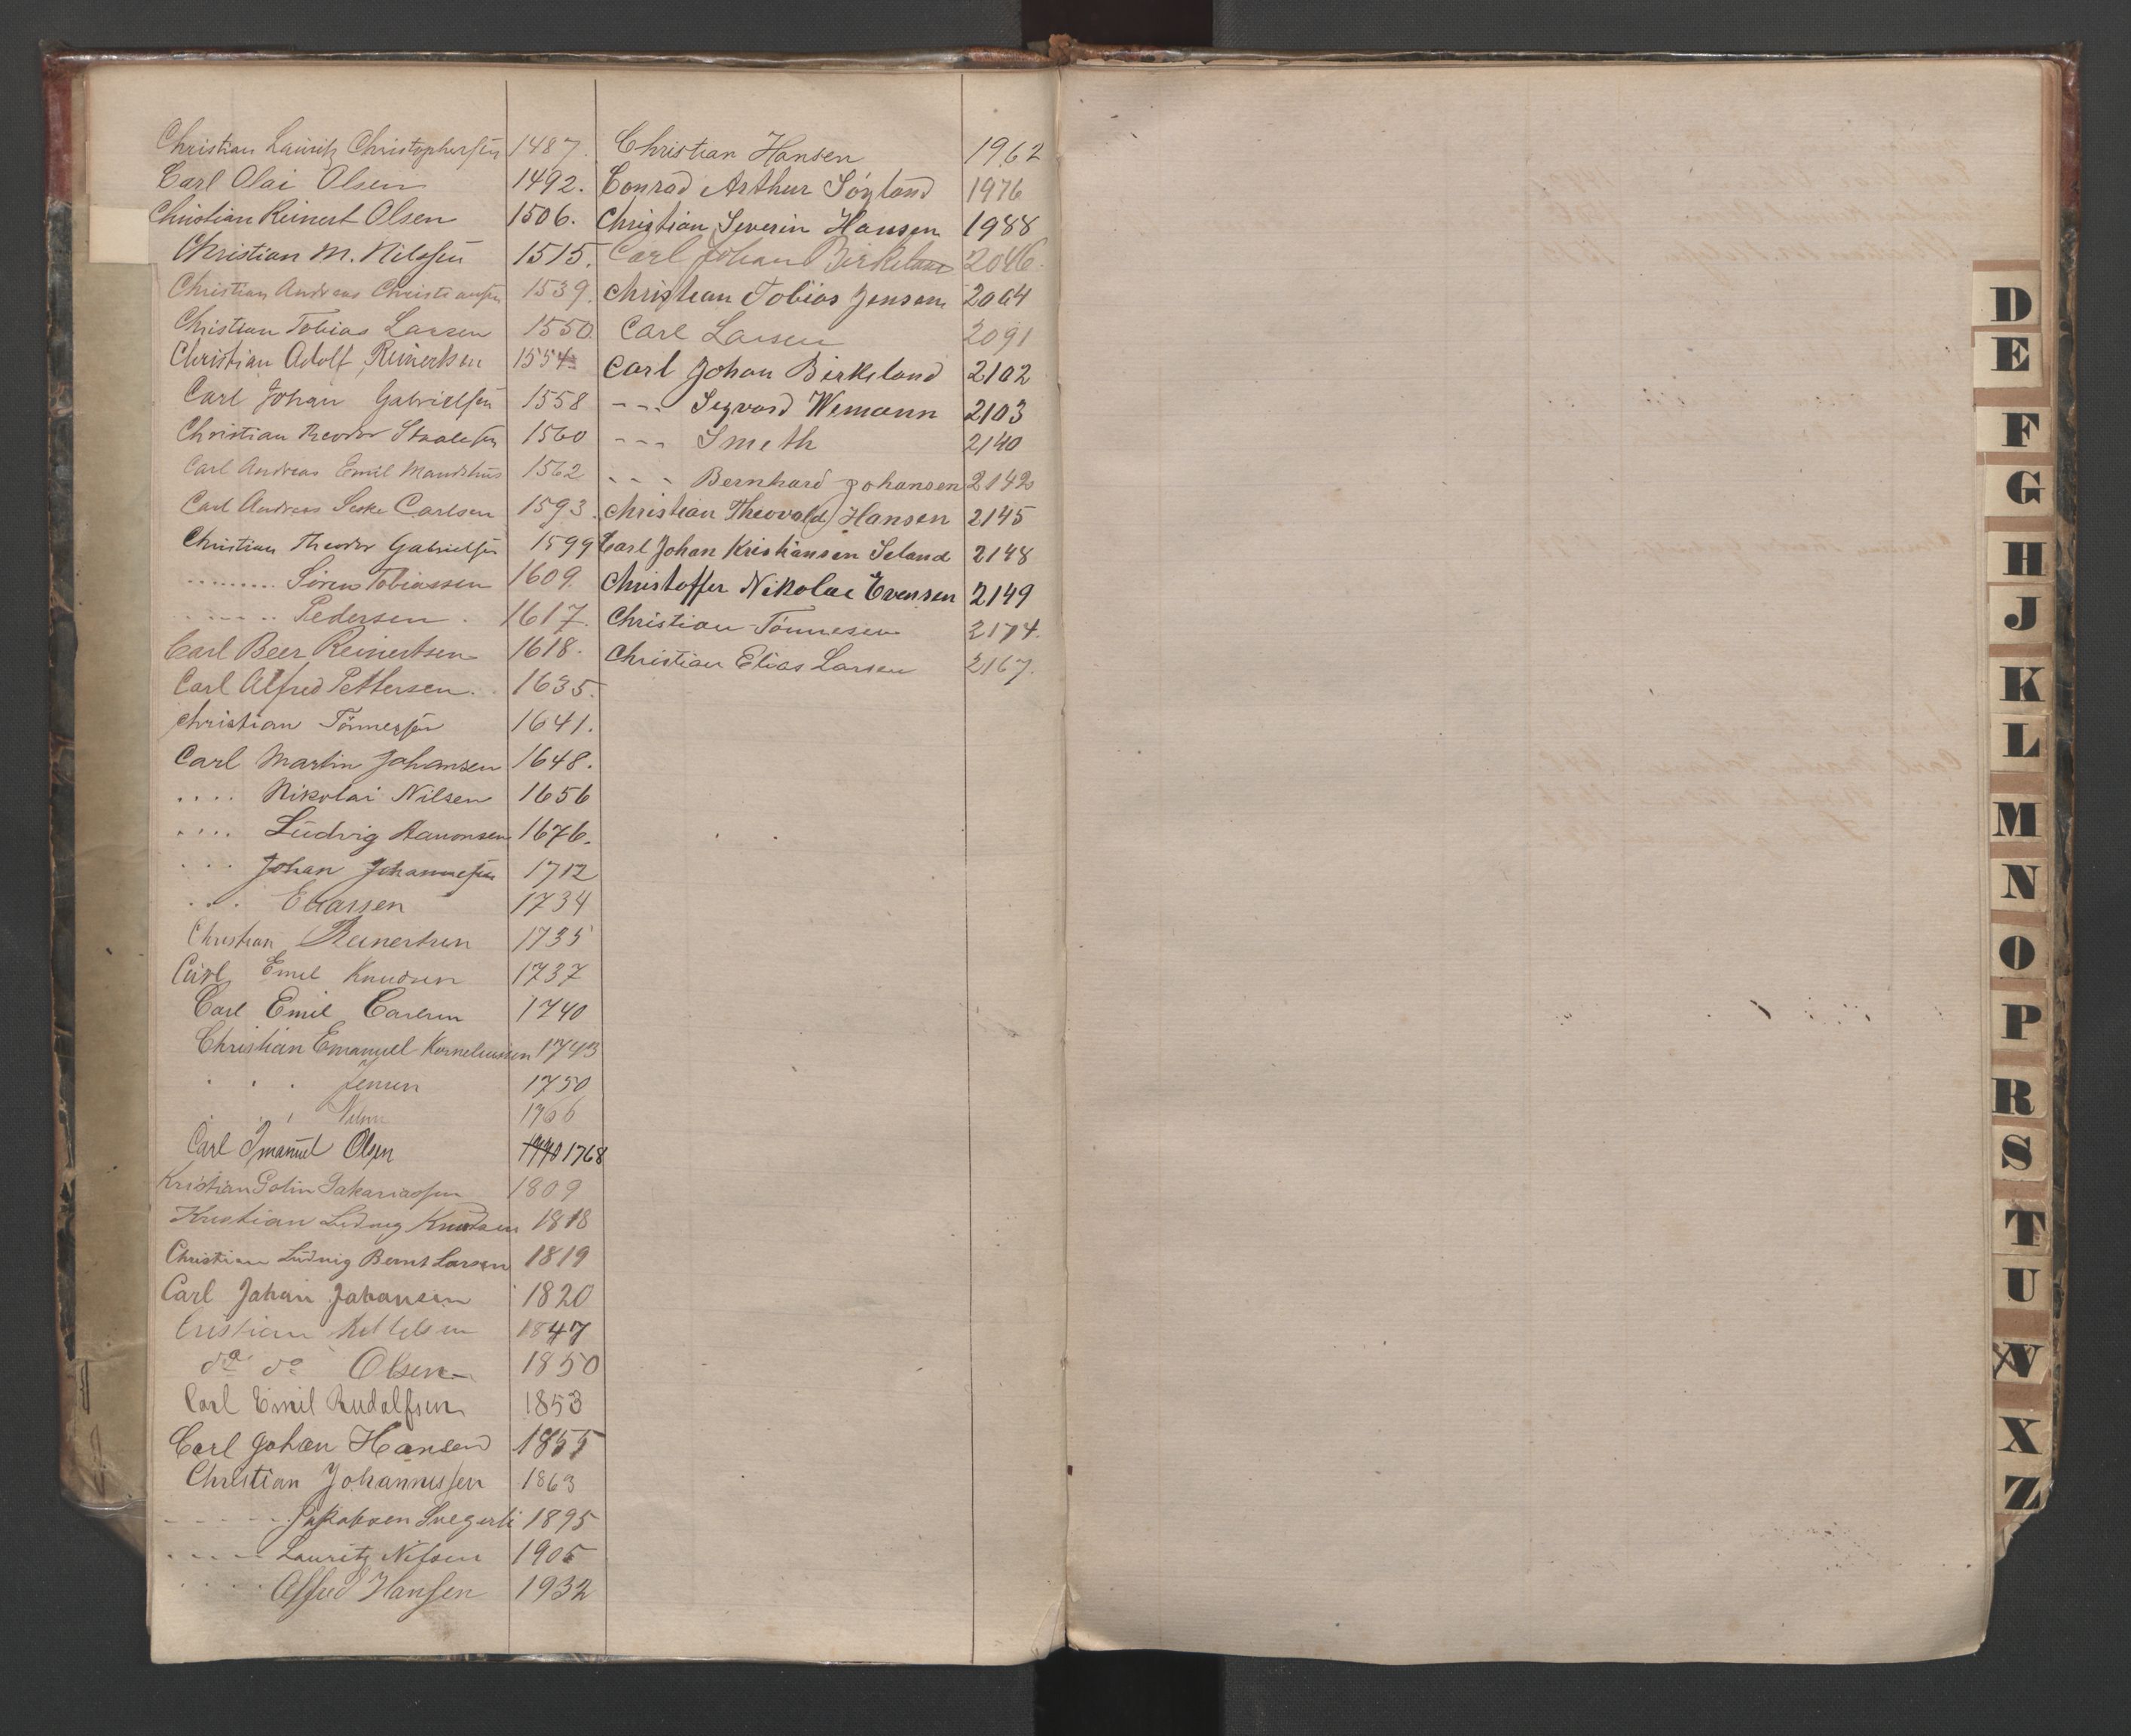 Christian Lauritz Christophersen 1487.
Carl Olai Olsen 1492.
Christian Reinert Olsen 1506.
Christian M. Nilsen 1515.
Christian Andreas Christiansen 1539.
Christian Tobias Larsen 1550.
Christian Adolf Reinertsen 1554
Carl Johan Gabrielsen 1558
Christian Theodor Staalesen 1560
Carl Andreas Emil 1562
Carl Andreas Carlsen 1593.
Christian Theodor Gabrielsen 1599
......... Sören Tobiassen 1609.
...... Pedersen. 1617.
Carl Beer Reinertsen 1618.
Carl Alfred Pettersen.. 1635.
Christian Tönnesen 1641.
Carl Martin Johansen 1648.
.... Nikolai Nilsen 1656
.... Ludvig Aanonsen 1676.
... Johan Johannesen 1712
... Eliassen 1734
Christian Reinertsen 1735
Carl Emil Knudsen 1737
Carl Emil Carlsen 1740
Christian Emanuel Korneliussen 1743
. . . Jensen 1750
. . . Nilsen 1766
Carl Imanuel Olsen 1770 1768
Kristian Sakariassen 1809
Kristian Ludvig Knutsen 1818
Christian Ludvig Bernt Larsen 1819
Carl Johan Johansen 1820
Cristian Kittelsen 1847
do do Olsen 1850
Carl Emil Rudolfsen 1853
Carl Johan Hansen 1855
Christian Johannessen 1863
----- Jakobsen 1895
----- Lauritz Nilsen 1905
..... Alfred Hansen 1932
Christian Hansen 1962
Conrad Arthur Söyland 1976
Christian Severin Hansen 1988
Carl Johan Birkeland 2046.
Christian Tobias Jensen 2064
Carl Larsen 2091
Carl Johan Birkeland 2102
--- Segvard Wemann 2103
--- Smeth 2140
--- Bernhard Johansen 2142
Christian Theovald Hansen 2145
Carl Johan Kristiansen Seland 2148
Christoffer Nikolai Evensen 2149
Christian Tönnesen 2174.
Christian Elias Larsen 2167.
D
E
F
G
H
J
K
L
M
N
O
P
R
S
T
U
V
X
Z